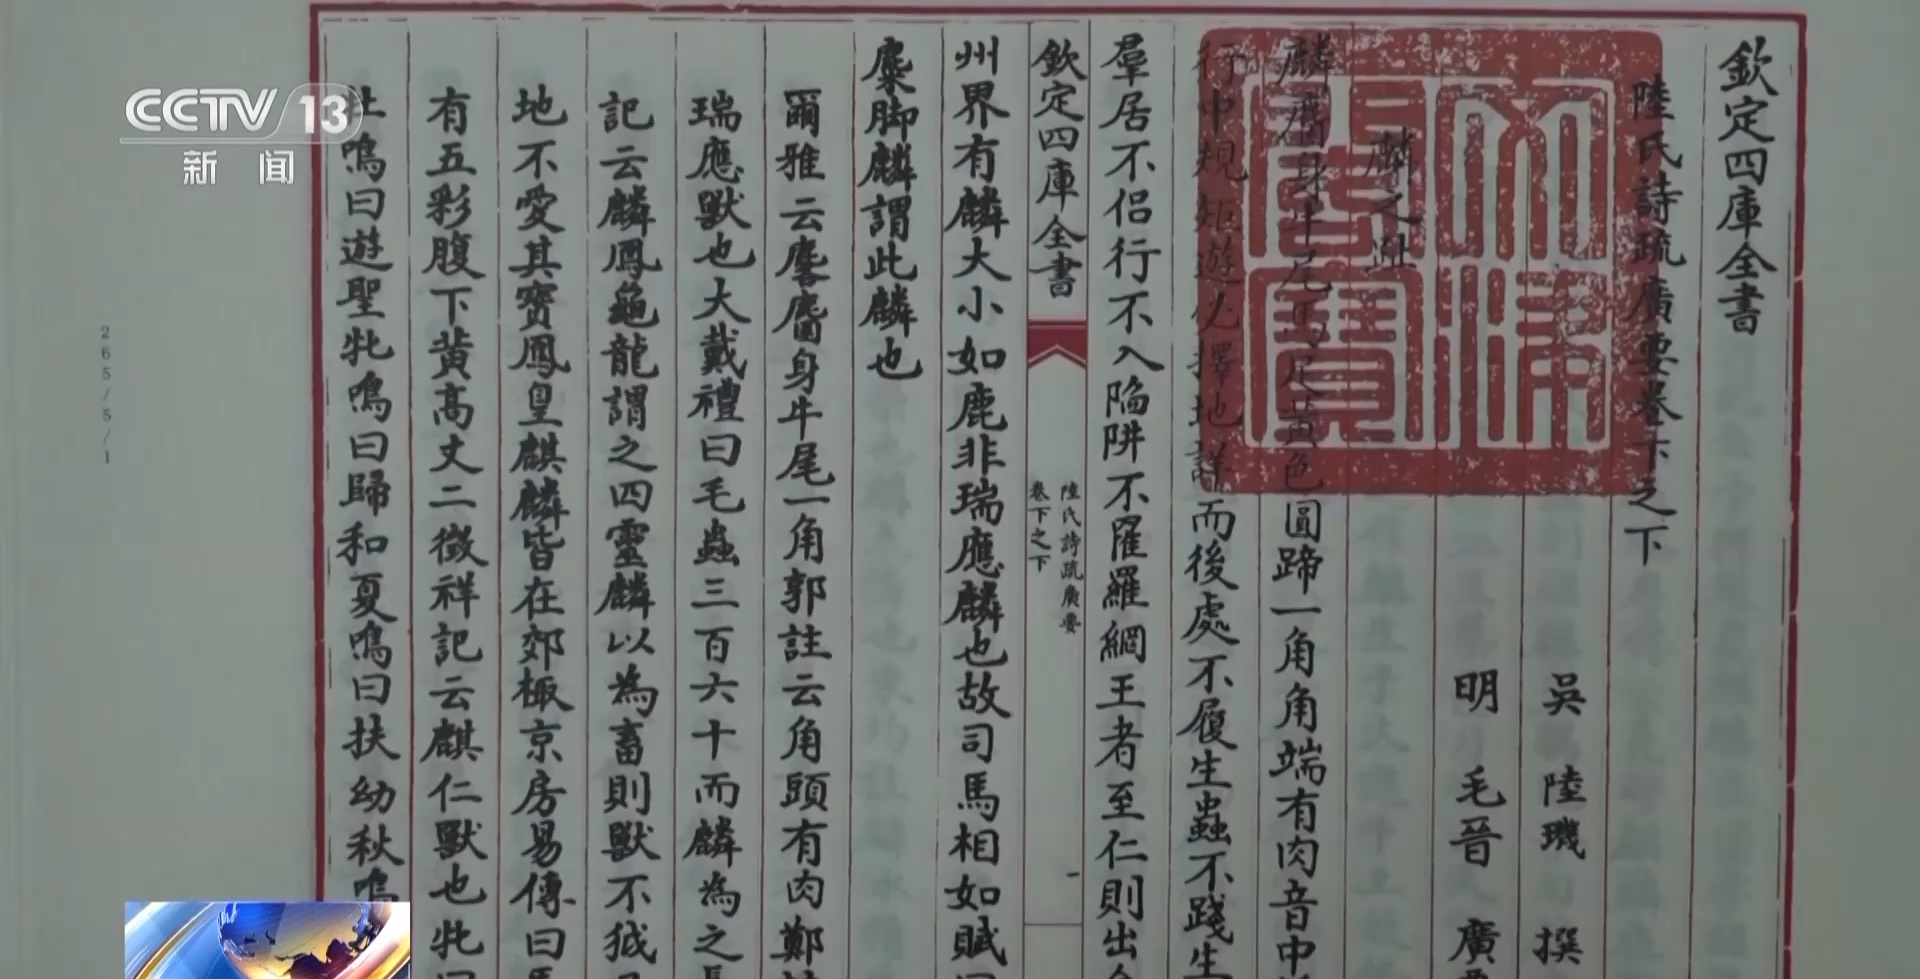 CCTV 13
新闻
欽定四庫全書
陸氏詩疏廣要卷下之下
吳 陸璣 撰
明 毛晉 廣要
麟之趾
麟麕身牛尾馬足黃色圓蹄一角角端有肉音中
行中規矩遊必擇地詳而後處不履生蟲不踐生
羣居不侶行行不入陷阱不罹羅網王者至仁則出今
欽定四庫全書
陸氏詩疏廣要
卷下之下
一
州界有麟大小如鹿非瑞應麟也故司馬相如賦曰
麋脚麟謂此麟也
爾雅云麐麕身牛尾一角郭註云角頭有肉鄭
瑞應獸也大戴禮曰毛蟲三百六十而麟為之長
記云麟鳳龜龍謂之四靈麟以為畜則獸不狘
地不愛其寶鳳皇麒麟皆在郊棷京房易傳曰
有五彩腹下黃高丈二徵祥記云麒仁獸也牝
牡鳴曰遊聖牝鳴曰歸和夏鳴曰扶幼秋鳴
大清
之寶
265/5/1